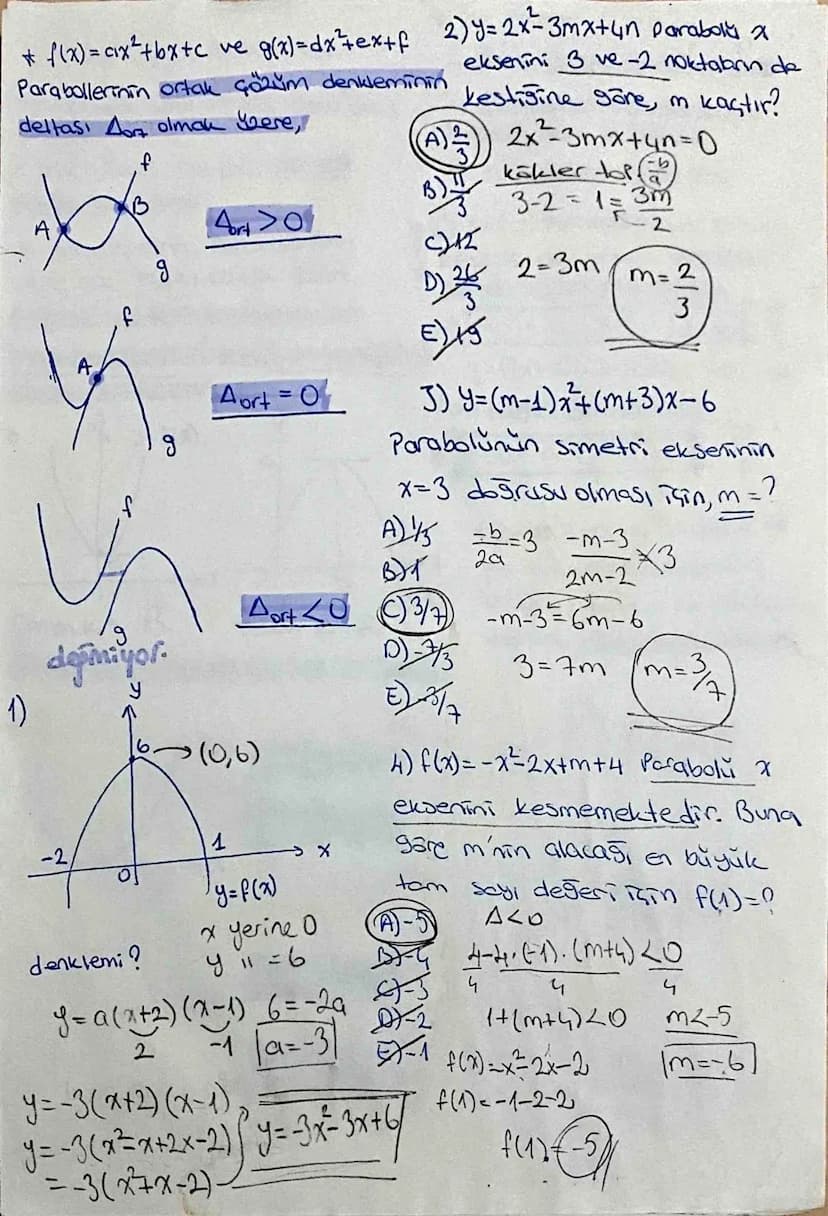 * f(x)=ax²+bx+c ve g(x)=dx²+ex+f
Parabollerinin ortak çözüm denkleminin
deltası Δort olmak üzere,
f
A
B
g
Δort > 0
f
A
g
Δort = 0
f
g
Δort < 0
değmiyor.
1)
y
6 → (0,6)
-2
0
1
x
y=f(x)
denklemi?
x yerine 0
y " = 6
y=a(x+2)(x-1)
2
-1
6=-2a
a=-3
y=-3(x+2)(x-1)
y=-3(x²-x+2x-2)
=-3(x²+x-2)
y=-3x²-3x+6
2) y=2x²-3mx+4n parabolü x
eksenini 3 ve -2 noktalarında
kestiğine göre, m kaçtır?
A) 2/3
B) 11/3
C) 12
D) 26/3
E) 19
2x²-3mx+4n=0
kökler top. (-b/a)
3-2 = 1 = 3m/2
2=3m
m=2/3
3) y=(m-1)x²+(m+3)x-6
Parabolünün simetri ekseninin
x=3 doğrusu olması için, m=?
A) 1/3
B) 1
C) 3/7
D) -7/3
E) -3/7
-b/2a=3
-m-3/2m-2 3
-m-3=6m-6
3=7m
m=3/7
4) f(x)=-x²-2x+m+4 Parabolü x
eksenini kesmemektedir. Buna
göre m'nin alacağı en büyük
tam sayı değeri için f(1)=?
A) -5
B) -4
C) -3
D) -2
E) -1
Δ<0
4-4.(-1).(m+4)<0
4 4 4
1+(m+4)<0
m<-5
m=-6
f(x)=-x²-2x-2
f(1)=-1-2-2
f(1)=-5